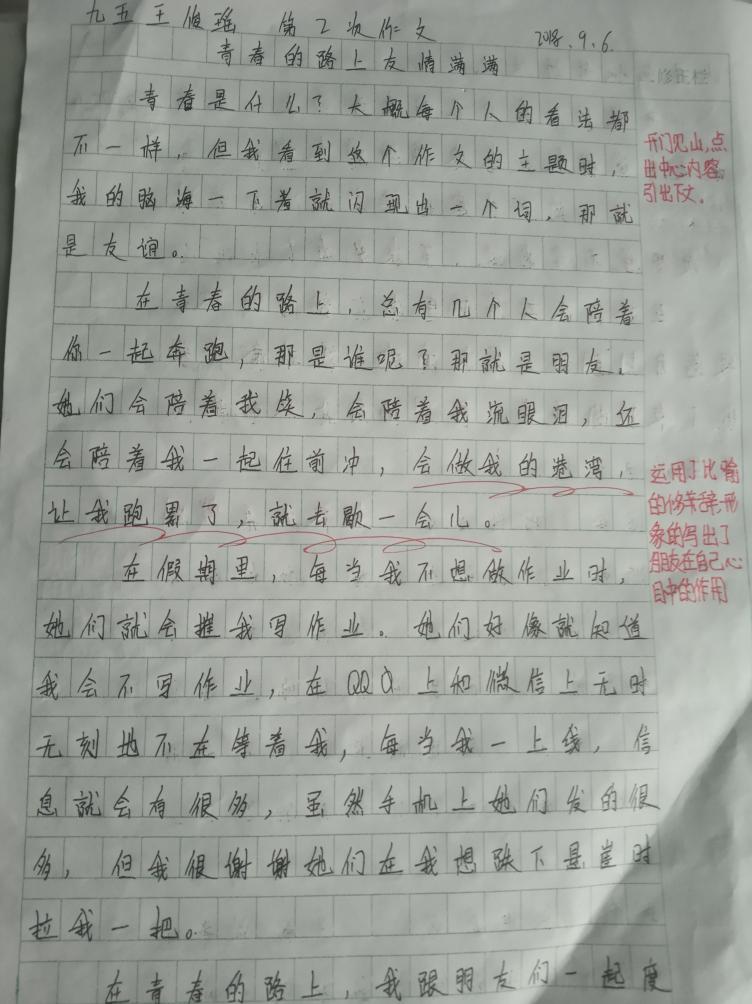 九五王俊瑶 第2次作文 2018.9.6.
青春的路上友情满满
修正栏
青春是什么?大概每个人的看法都
不一样,但我看到这个作文的主题时,
我的脑海一下着就闪现出一个词,那就
是友谊。
在青春的路上,总有几个人会陪着
你一起奔跑,那是谁呢?那就是朋友。
她们会陪着我笑,会陪着我流眼泪,还
会陪着我一起往前冲,会做我的港湾,
让我跑累了,就去歇一会儿。
在假期里,每当我不想做作业时,
她们就会摧我写作业。她们好像就知道
我会不写作业,在QQ上和微信上无时
无刻地不在等着我,每当我一上线,信
息就会有很多,虽然手机上她们发的很
多,但我很谢谢她们在我想跌下悬崖时
拉我一把。
在青春的路上,我跟朋友们一起度
开门见山,点
出中心内容,
引出下文。
运用了比喻
的修辞,形
象的写出了
朋友在自己心
目中的作用